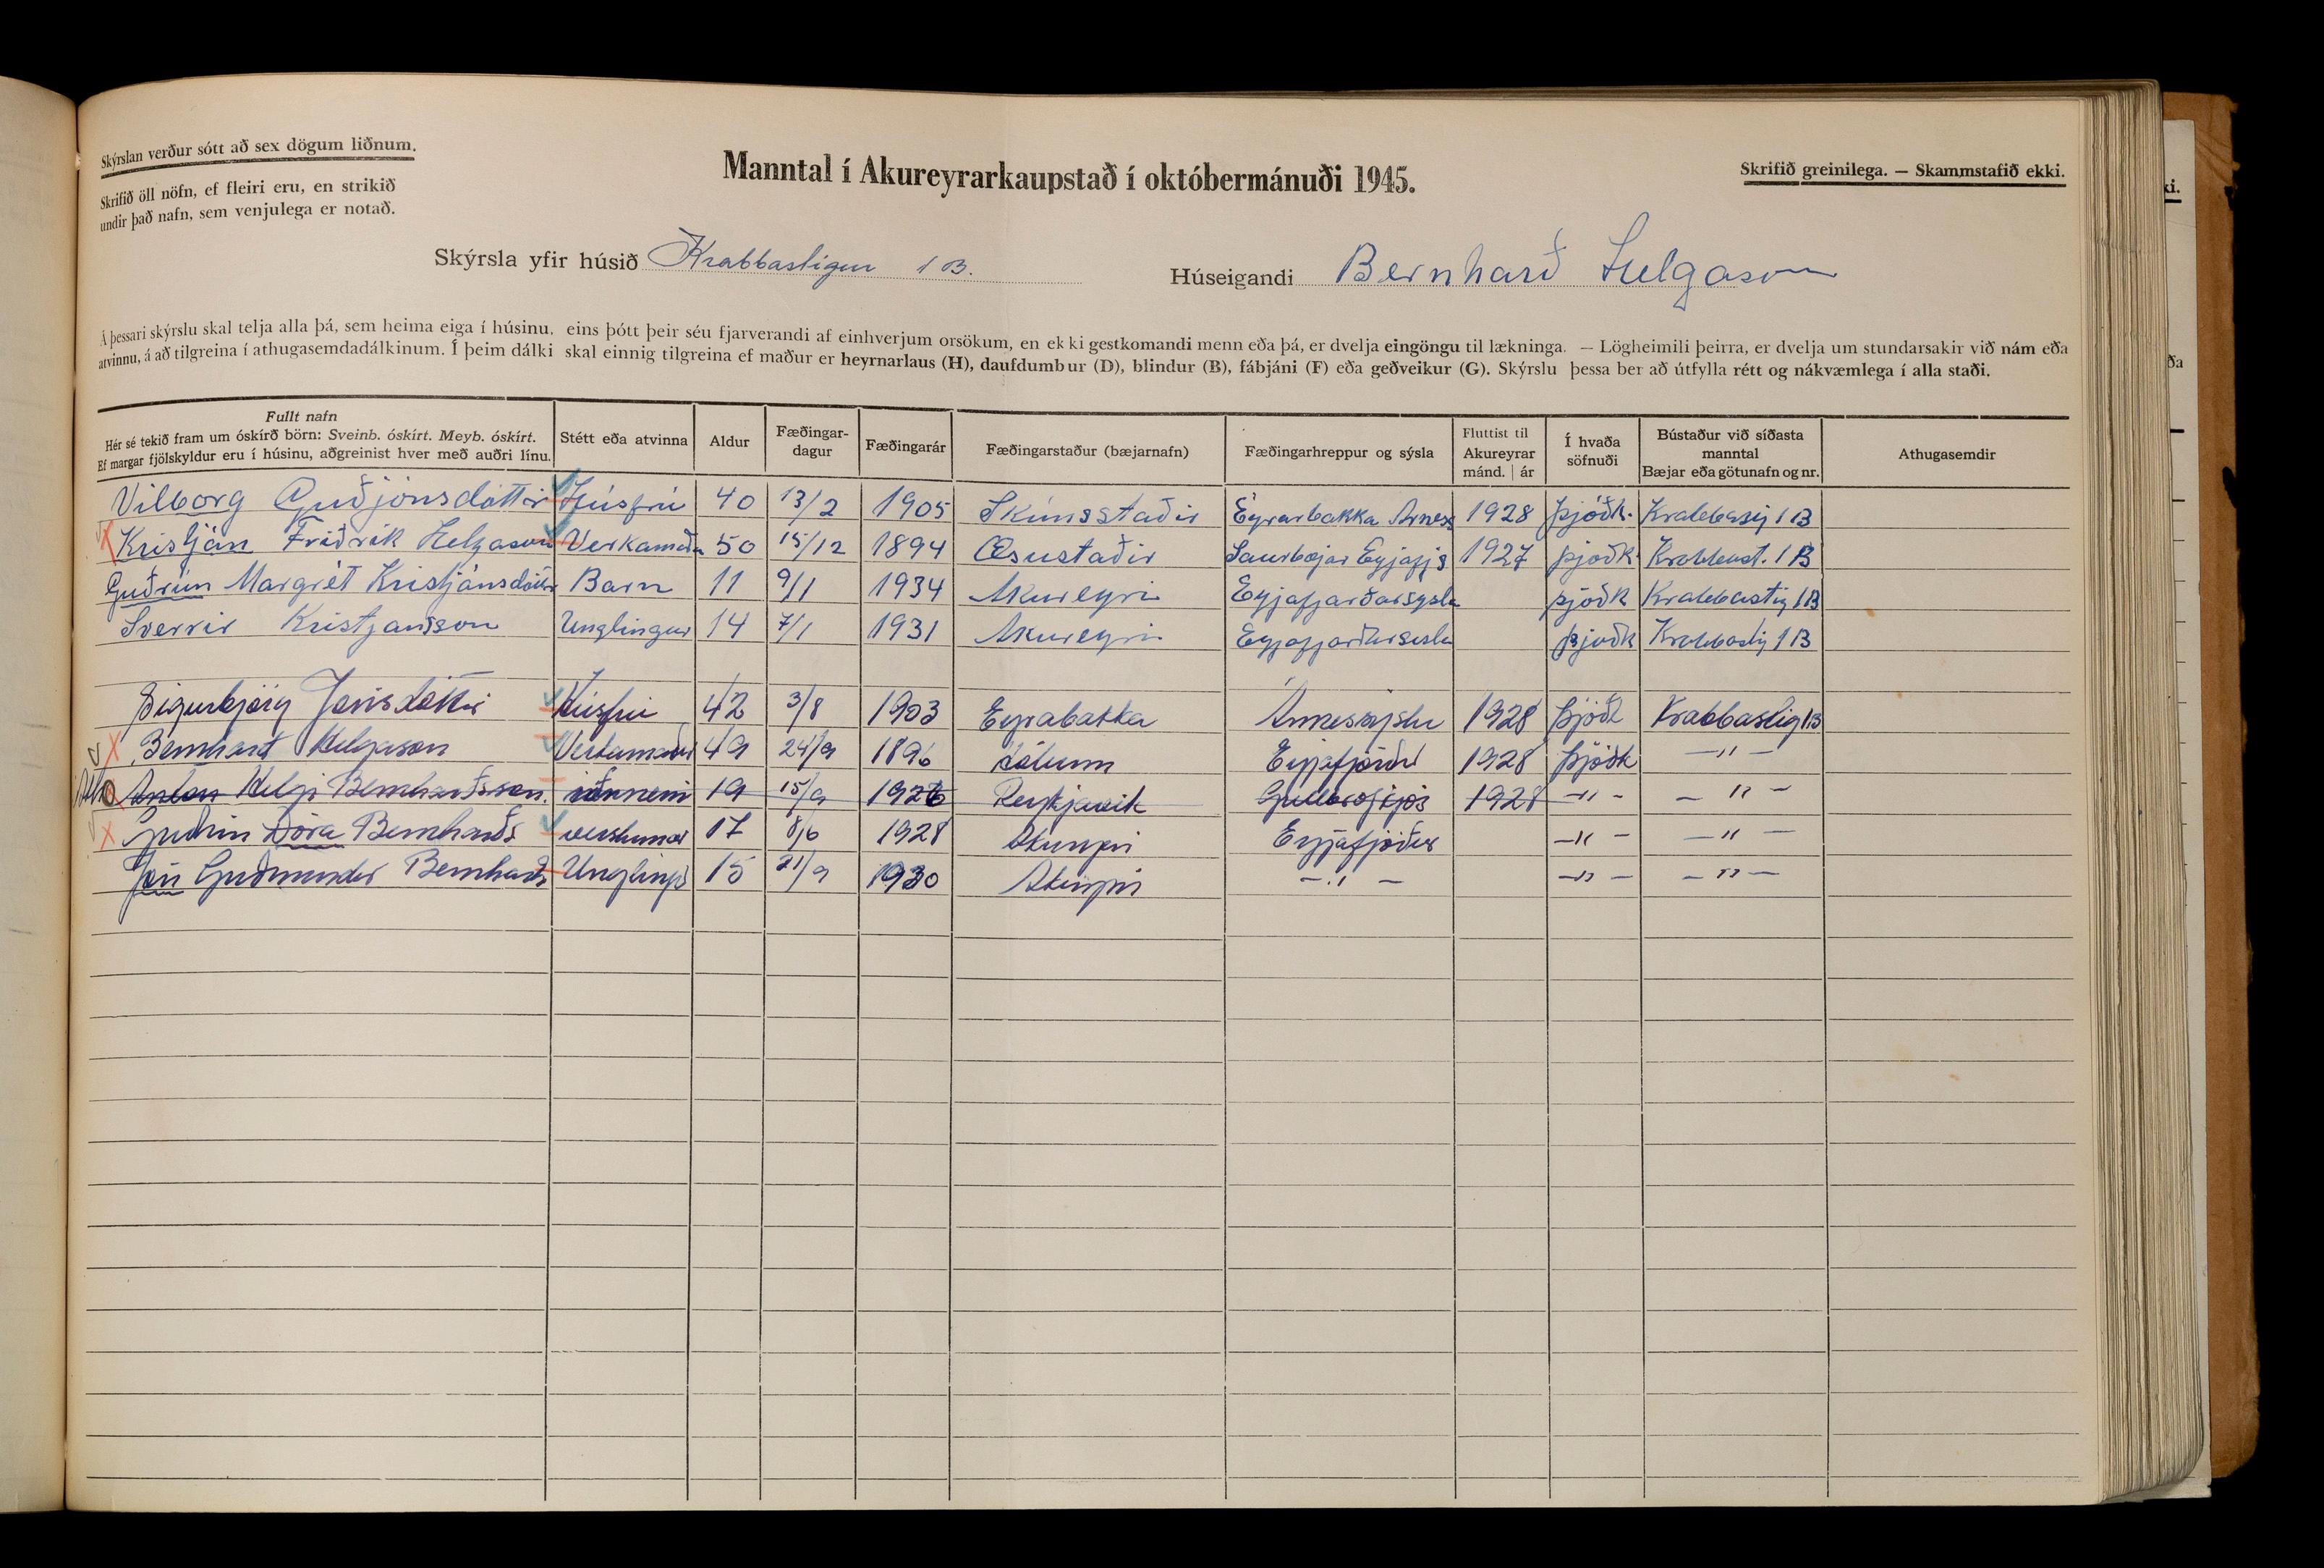 Skýrslan verður sótt að sex dögum liðnum.
Skrifið öll nöfn, ef fleiri eru, en strikið
undir það nafn, sem venjulega er notað.
Manntal í Akureyrarkaupstað í októbermánuði 1945.
Skrifið greinilega. — Skammstafið ekki.
Skýrsla yfir húsið Krabbastigur 1 B.
Húseigandi Bernharð Helgason
Á þessari skýrslu skal telja alla þá, sem heima eiga í húsinu, eins þótt þeir séu fjarverandi af einhverjum orsökum, en ekki gestkomandi menn eða þá, er dvelja eingöngu til lækninga. — Lögheimili þeirra, er dvelja um stundarsakir við nám eða
atvinnu, á að tilgreina í athugasemdadálkinum. Í þeim dálki skal einnig tilgreina ef maður er heyrnarlaus (H), daufdumbur (D), blindur (B), fábjáni (F) eða geðveikur (G). Skýrslu þessa ber að útfylla rétt og nákvæmlega í alla staði.
Fullt nafn
Hér sé tekið fram um óskírð börn: Sveinb. óskírt. Meyb. óskírt.
Ef margar fjölskyldur eru í húsinu, aðgreinist hver með auðri línu.
Stétt eða atvinna
Aldur
Fæðingar-
dagur
Fæðingarár
Fæðingarstaður (bæjarnafn)
Fæðingarhreppur og sýsla
Fluttist til
Akureyrar
mánd. | ár
Í hvaða
söfnuði
Bústaður við síðasta
manntal
Bæjar eða götunafn og nr.
Athugasemdir
Vilborg Guðjónsdóttir Húsfrú 40 13/2 1905 Skúmsstaðir Eyrarbakka Árness 1928 þjóðk. Krabbasig 1 B
Kristján Friðrik Helgason Verkamaðu 50 15/12 1894 Æsustaðir Saurbæjar Eyjafjs 1927 þjoðk. Krabbast. 1 B
Guðrún Margrét Kristjánsdóttir Barn 11 9/1 1934 Akureyri Eyjafjarðarsysla þjóðk Krabbastig 1 B
Sverrir Kristjansson Unglingur 14 7/1 1931 Akureyri Eyjafjarðarsisla þjoðk Krabbastig 1 B
Sigurbjörg Jónsdóttir Húsfrú 42 3/8 1903 Eyrabakka Árnessýslu 1928 þjóðk Krabbastig 1B
Bernharð Helgason Verkamaður 49 24/9 1896 Hólum Eyjafjörður 1928 þjóðk —"—
Anton Helgi Bernharðsson. iðnnemi 19 15/9 1926 Reykjavik Gullbr og Kjós 1928 —"— —"—
Guðrún Dóra Bernharðs verslunar 17 8/6 1928 Akureyri Eyjafjörður —"— —"—
Jón Guðmundur Bernharðs Unglingr 15 21/9 1930 Akureyri —"— —"— —"—